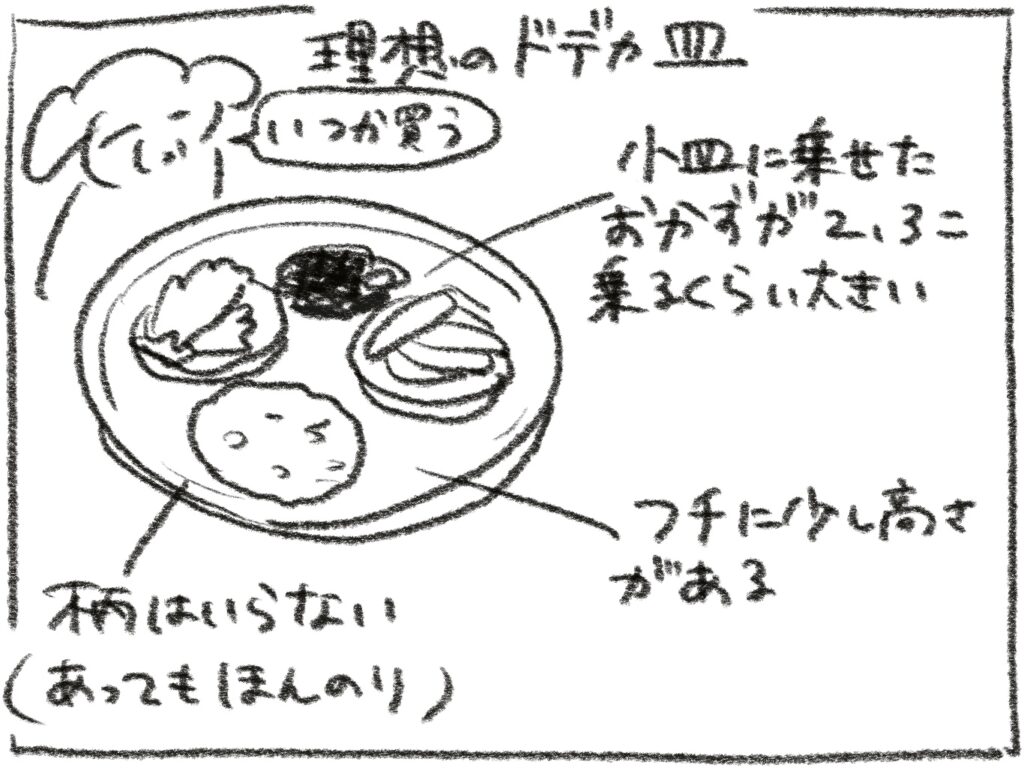 理想のドデカ皿
いつか買う
小皿に乗せた
おかずが2、3こ
乗るくらい大きい
フチに少し高さ
がある
柄はいらない
(あってもほんのり)